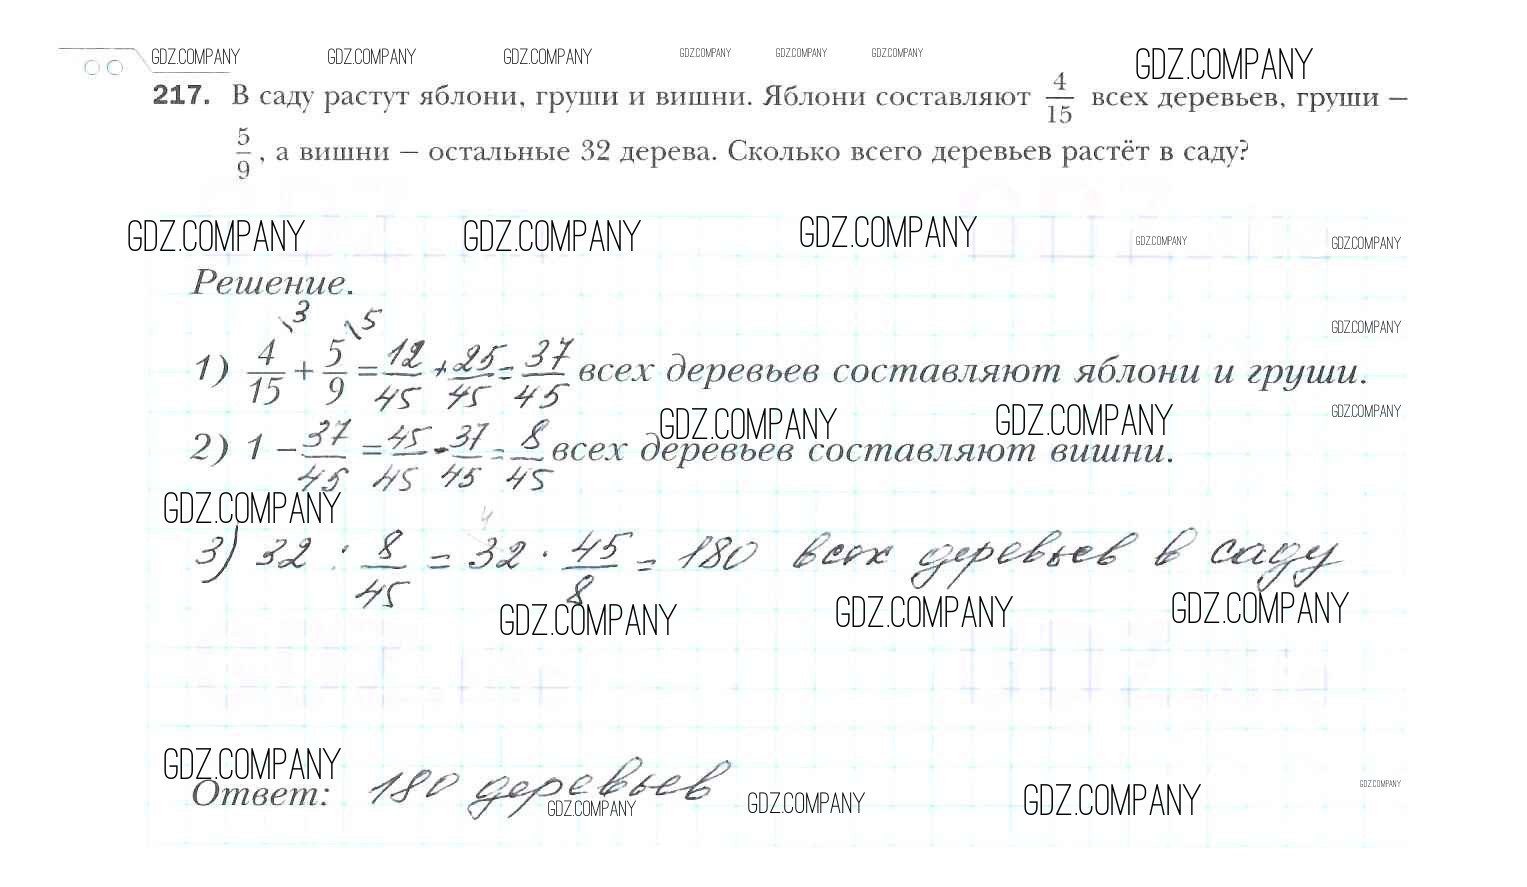 GDZ.COMPANY GDZ.COMPANY GDZ.COMPANY GDZ.COMPANY GDZ.COMPANY GDZ.COMPANY GDZ.COMPANY
217. В саду растут яблони, груши и вишни. Яблони составляют 4/15 всех деревьев, груши –
5/9, а вишни – остальные 32 дерева. Сколько всего деревьев растёт в саду?
GDZ.COMPANY GDZ.COMPANY GDZ.COMPANY GDZ.COMPANY GDZ.COMPANY
Решение.
GDZ.COMPANY
1) 4/15 \3 + 5/9 \5 = 12/45 + 25/45 = 37/45 всех деревьев составляют яблони и груши.
GDZ.COMPANY GDZ.COMPANY GDZ.COMPANY
2) 1 – 37/45 = 45/45 - 37/45 = 8/45 всех деревьев составляют вишни.
GDZ.COMPANY
3) 32 : 8/45 = 32 · 45/8 = 180 всех деревьев в саду
GDZ.COMPANY GDZ.COMPANY GDZ.COMPANY
GDZ.COMPANY
Ответ: 180 деревьев
GDZ.COMPANY GDZ.COMPANY GDZ.COMPANY GDZ.COMPANY